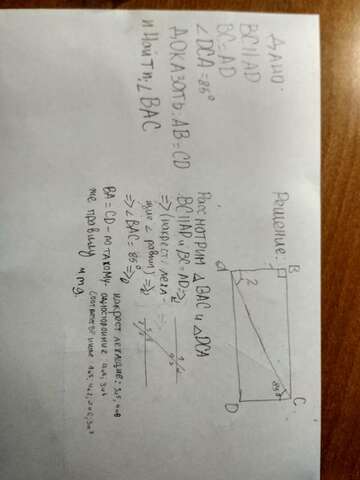 Дано:
BC||AD
BC=AD
∠DCA=85°
ДОКАЗАТЬ: AB=CD
и Найти ∠ BAC
Решение:
B
C
A
D
?
85°
Рассмотрим Δ BAC и ΔDCA
BC||AD и BC=AD=>
=> (накрест леж-
ащие ∠ равны) =>
=> ∠ BAC = 85° =>
BA = CD - по такому
же правилу
и т.д.
накрест лежащие:
односторонние: